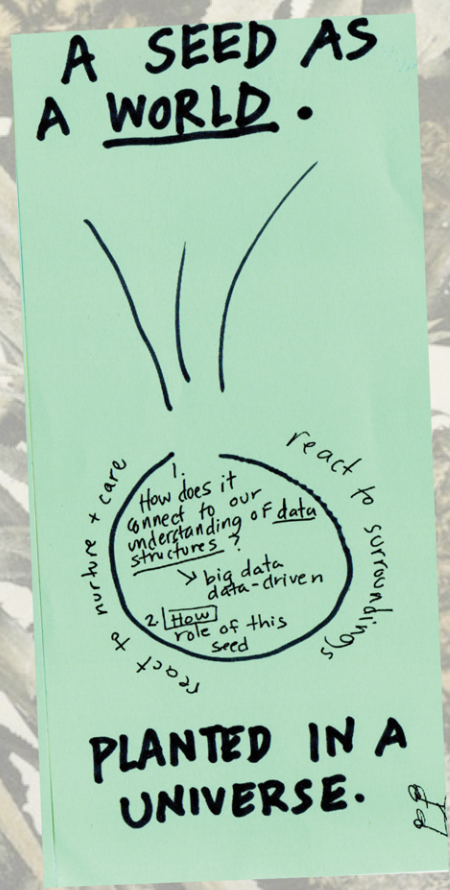 A SEED AS
A WORLD.
react to nurture + care
react to surroundings
1.
How does it
connect to our
understanding of data
structures?
↘ big data
data-driven
2 How
role of this
seed
PLANTED IN A
UNIVERSE.